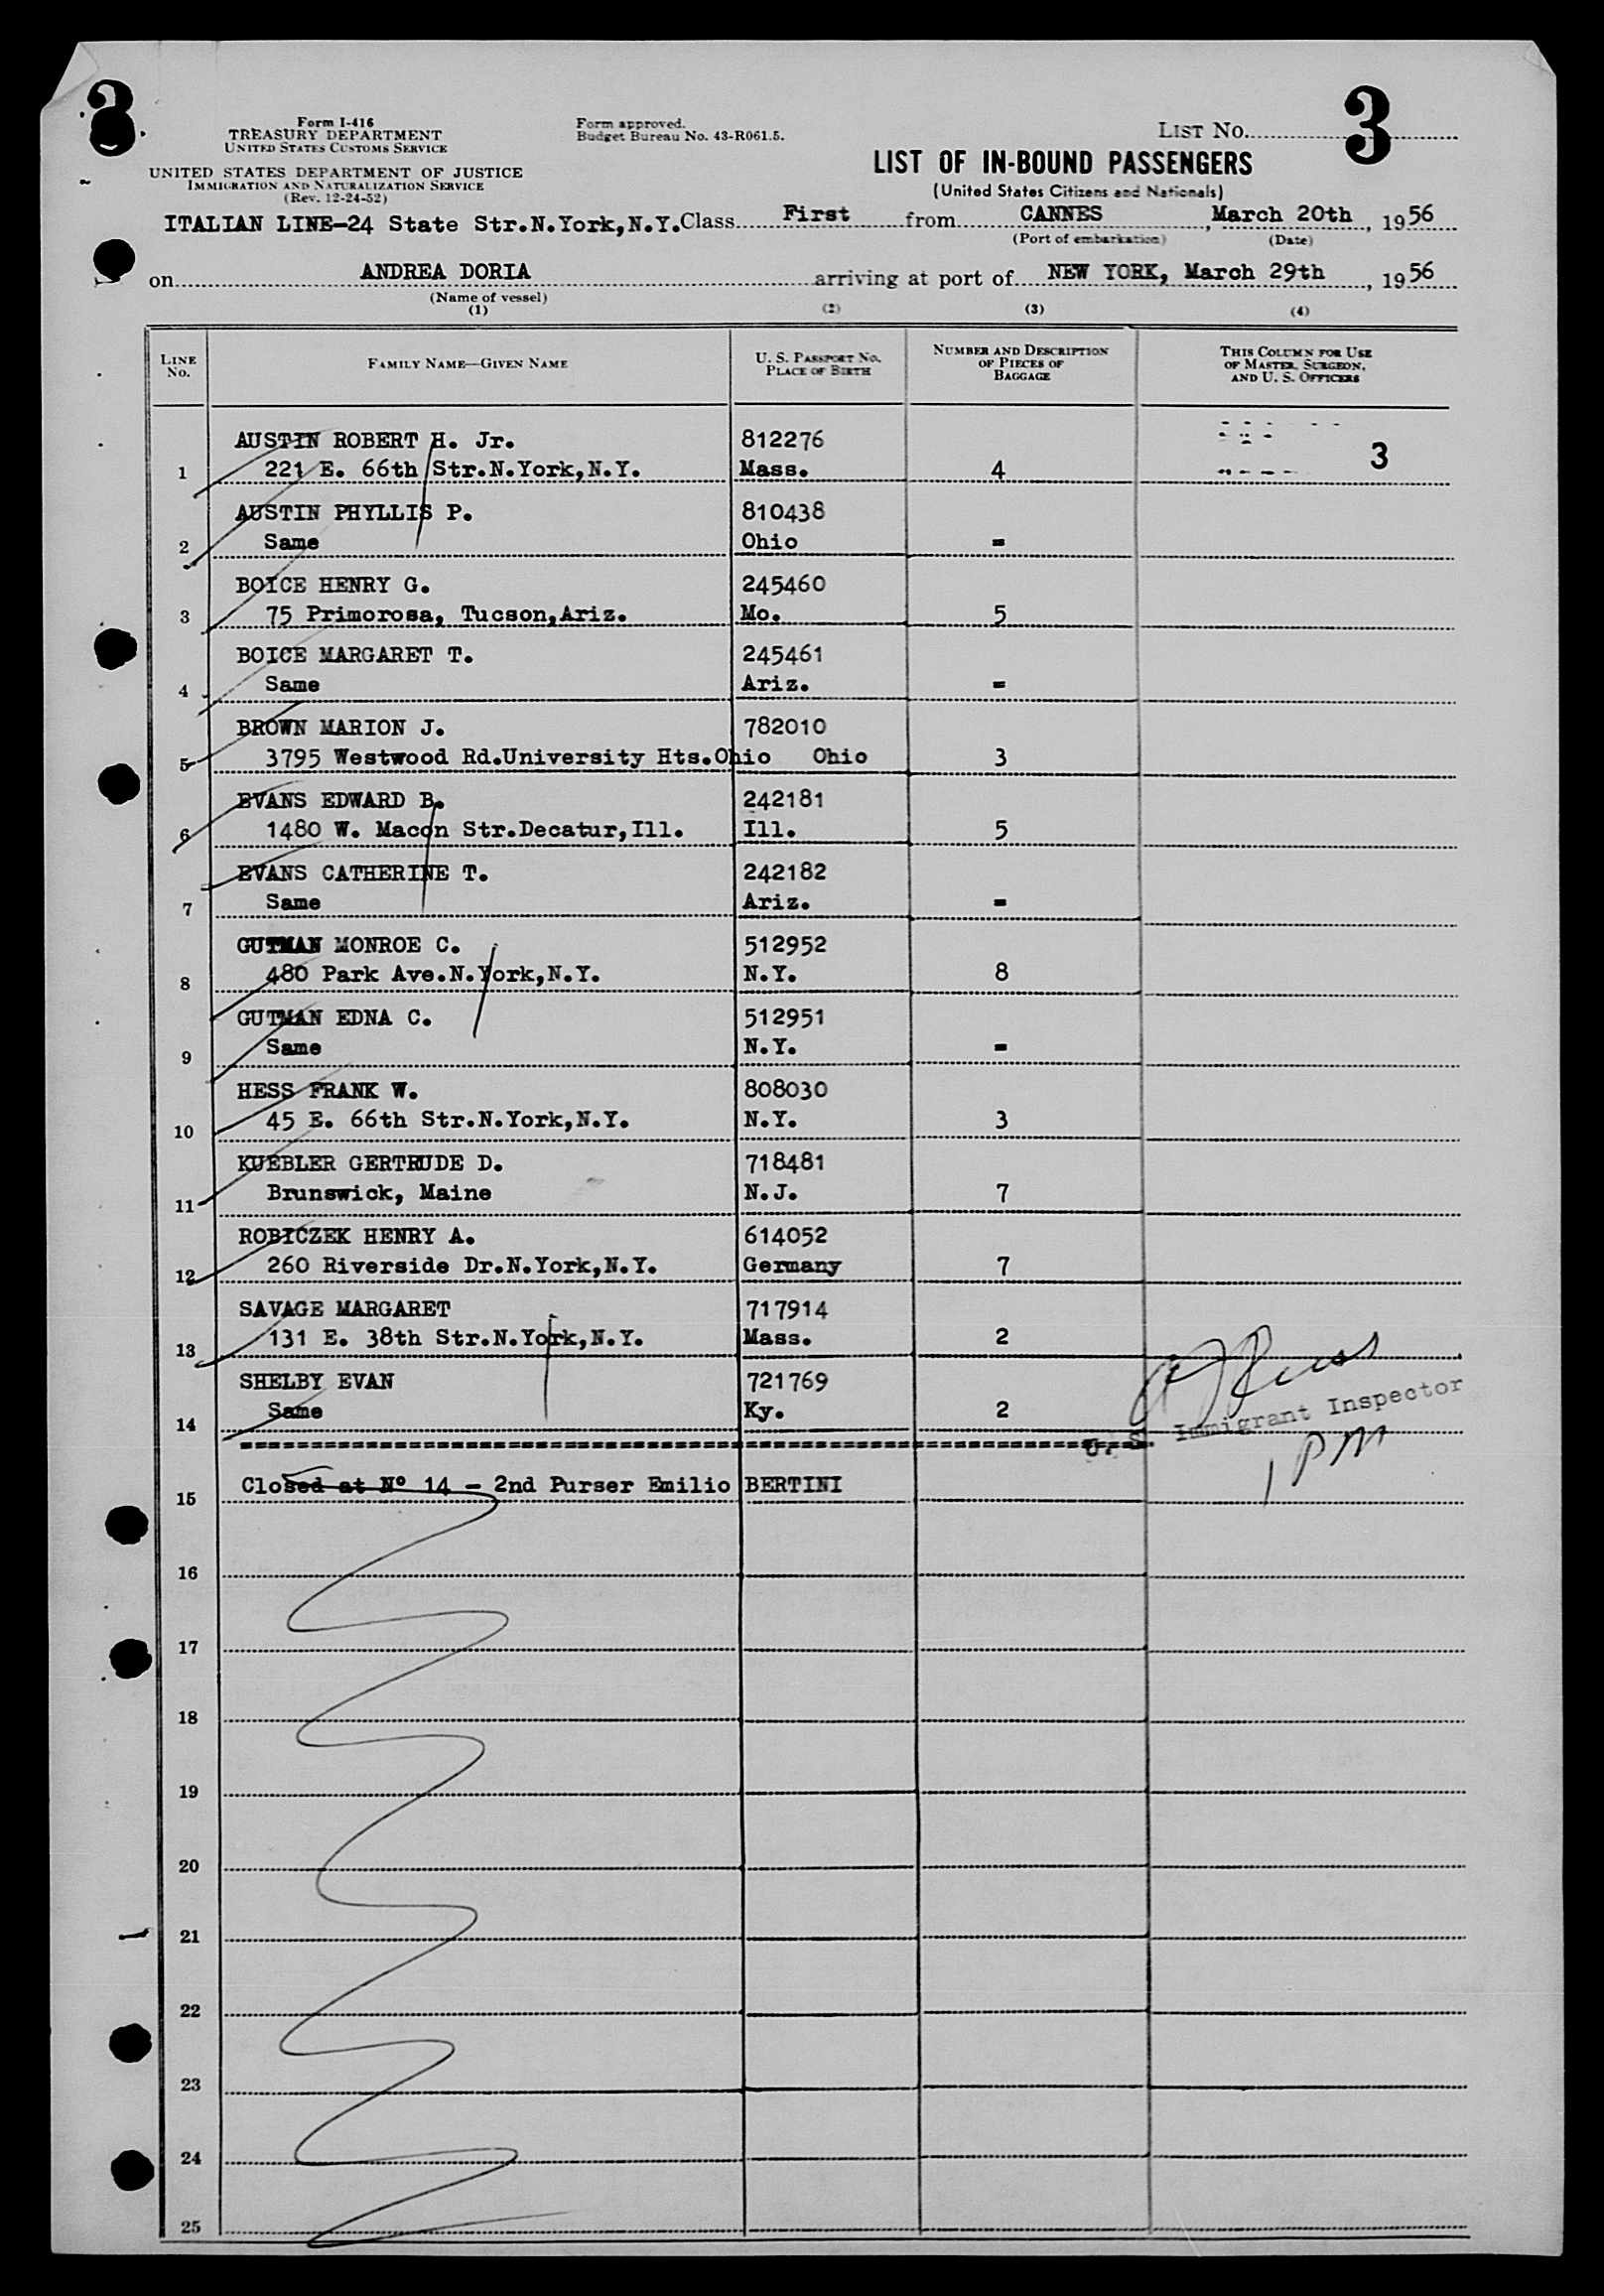 3
3
Form I-416
TREASURY DEPARTMENT
UNITED STATES CUSTOMS SERVICE
Form approved.
Budget Bureau No. 43-R061.5.
LIST NO.
UNITED STATES DEPARTMENT OF JUSTICE
IMMIGRATION AND NATURALIZATION SERVICE
(Rev. 12-24-52)
LIST OF IN-BOUND PASSENGERS
(United States Citizens and Nationals)
ITALIAN LINE-24 State Str.N.York,N.Y. Class First from CANNES, March 20th, 1956
(Port of embarkation) (Date)
on ANDREA DORIA arriving at port of NEW YORK, March 29th, 1956
(Name of vessel)
(1) (2) (3) (4)
LINE NO.
FAMILY NAME—GIVEN NAME
U. S. PASSPORT NO.
PLACE OF BIRTH
NUMBER AND DESCRIPTION
OF PIECES OF
BAGGAGE
THIS COLUMN FOR USE
OF MASTER, SURGEON,
AND U. S. OFFICERS
AUSTIN ROBERT H. Jr. 812276
3
1 221 E. 66th Str.N.York,N.Y. Mass. 4
AUSTIN PHYLLIS P. 810438
2 Same Ohio =
BOICE HENRY G. 245460
3 75 Primorosa, Tucson,Ariz. Mo. 5
BOICE MARGARET T. 245461
4 Same Ariz. =
BROWN MARION J. 782010
5 3795 Westwood Rd.University Hts.Ohio Ohio 3
EVANS EDWARD B. 242181
6 1480 W. Macon Str.Decatur,Ill. Ill. 5
EVANS CATHERINE T. 242182
7 Same Ariz. =
GUTMAN MONROE C. 512952
8 480 Park Ave.N.York,N.Y. N.Y. 8
GUTMAN EDNA C. 512951
9 Same N.Y. =
HESS FRANK W. 808030
10 45 E. 66th Str.N.York,N.Y. N.Y. 3
KUEBLER GERTRUDE D. 718481
11 Brunswick, Maine N.J. 7
ROBICZEK HENRY A. 614052
12 260 Riverside Dr.N.York,N.Y. Germany 7
SAVAGE MARGARET 717914
13 131 E. 38th Str.N.York,N.Y. Mass. 2
SHELBY EVAN 721769
14 Same Ky. 2
U. S. Immigrant Inspector
1 PM
15 Closed at Nº 14 - 2nd Purser Emilio BERTINI
16
17
18
19
20
21
22
23
24
25